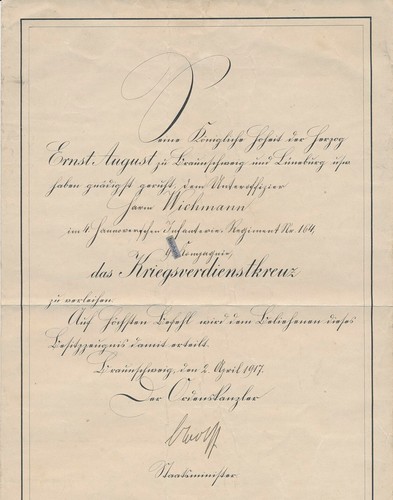 Seine Königliche Hoheit der Herzog
Ernst August zu Braunschweig und Lüneburg usw
haben gnädigst geruht, dem Unteroffizier
Herrn Wichmann
im 4 Hannoverschen Infanterie-Regiment No 164,
Kompagnie,
das Kriegsverdienstkreuz
zu verleihen.
Auf Höchsten Befehl wird dem Beliehenen dieses
Besitzzeugnis damit erteilt.
Braunschweig, den 2. April 1917.
Der Ordenskanzler
Staatsminister.